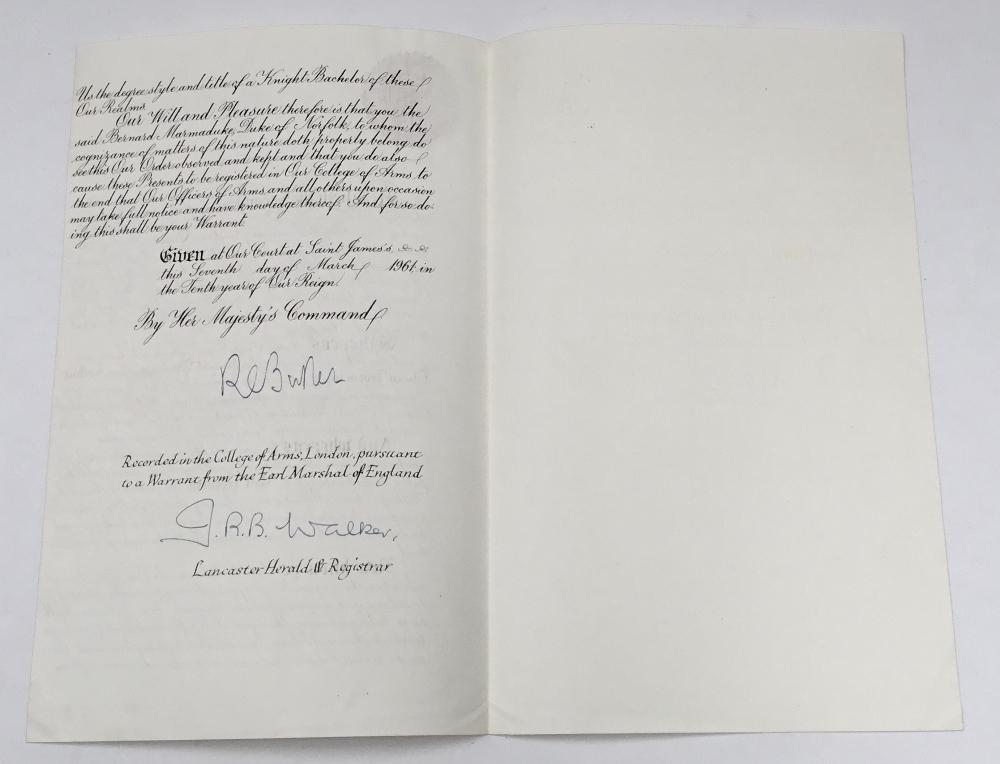 Us the degree style and title of a Knight Bachelor of these
Our Realms.
Our Will and Pleasure therefore is that you the
said Bernard Marmaduke, Duke of Norfolk, to whom the
cognizance of matters of this nature doth properly belong do
see this Our Order observed and kept and that you do also
cause these Presents to be registered in Our College of Arms to
the end that Our Officers of Arms and all others upon occasion
may take full notice and have knowledge thereof. And for so do-
ing this shall be your Warrant.
Given at Our Court at Saint James's,
this Seventh day of March 1961, in
the Tenth year of Our Reign.
By Her Majesty's Command
RA Butler
Recorded in the College of Arms, London, pursuant
to a Warrant from the Earl Marshal of England
J.R.B. Walker,
Lancaster Herald & Registrar